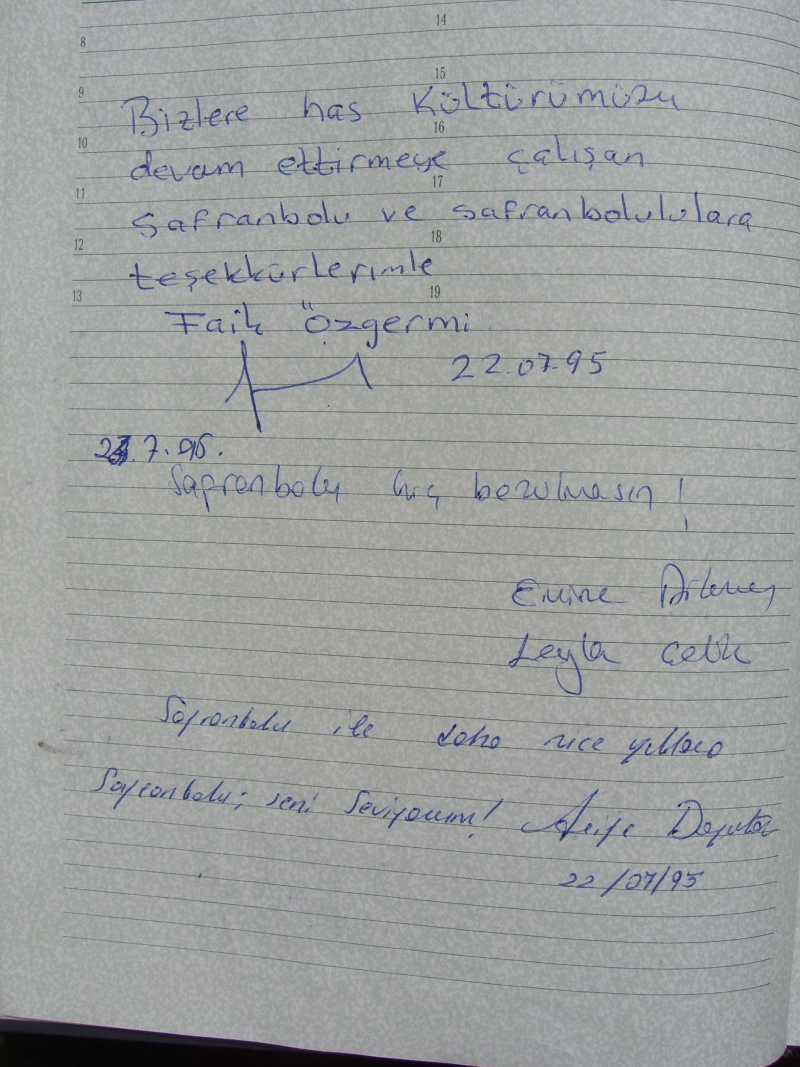 14
8
15
9
Bizlere has Kültürümüzü
16
10
devam ettirmeye çalışan
17
11
Safranbolu ve safranbolululara
18
12
teşekkürlerimle
19
13
Faik Özgermi
22.07.95
7.95.
Safranbolu hiç bozulmasın!
Emine
Leyla Çelik
Safranbolu ile daha nice yıllara
Safranbolu; seni seviyorum!
22/07/95